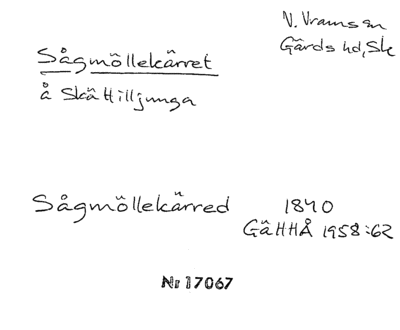 V. Vramssn
Gärds hd, Sk
Sågmöllekärret
å Skättilljunga
Sågmöllekärred 1840
GäHHÅ 1958:62
Nr 17067